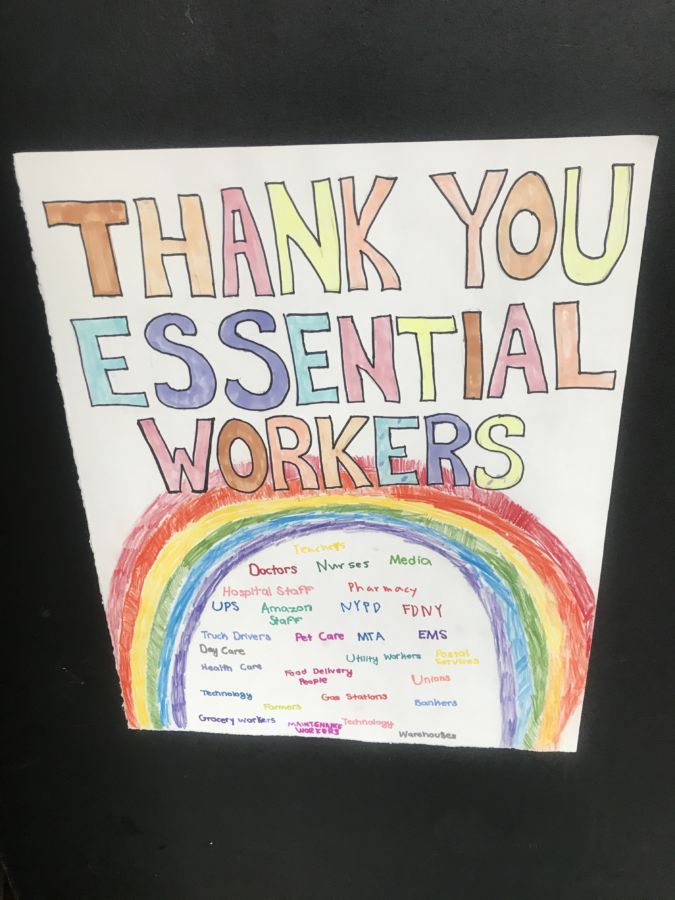 THANK YOU
ESSENTIAL
WORKERS
Teachers
Doctors Nurses Media
Hospital Staff Pharmacy
UPS Amazon Staff NYPD FDNY
Truck Drivers Pet Care MTA EMS
Day Care Utility Workers Postal Services
Health Care Food Delivery People Unions
Technology Gas Stations
Farmers Bankers
Grocery workers MAINTENANCE WORKERS Technology
Warehouses